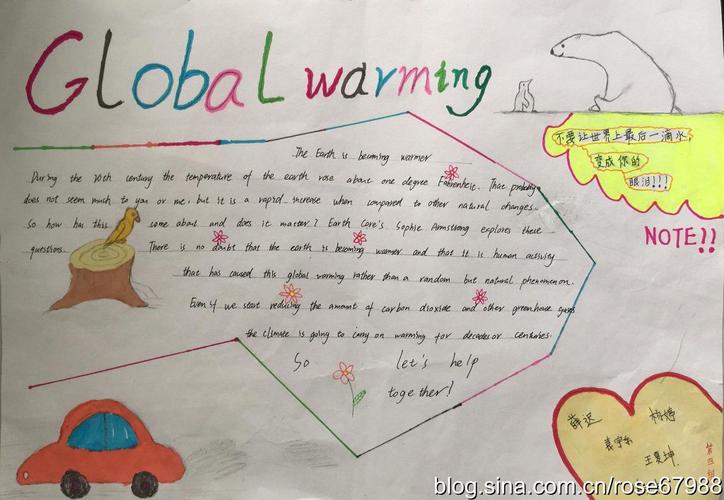 Global warming
The Earth is becoming warmer
During the 20th century the temperature of the earth rose about one degree Fahrenheit. That probably
does not seem much to you or me, but it is a rapid increase when compared to other natural changes.
So how has this come about and does it matter? Earth Care's Sophie Armstrong explores these
questions. There is no doubt that the earth is becoming warmer and that it is human activity
that has caused this global warming rather than a random but natural phenomenon.
Even if we start reducing the amount of carbon dioxide and other greenhouse gases
the climate is going to carry on warming for decades or centuries.
So let's help
together!
不要让世界上最后一滴水,
变成你的
眼泪!!!
NOTE!!
薛迟
杨婷
王昊坤
第四组
blog.sina.com.cn/rose67988